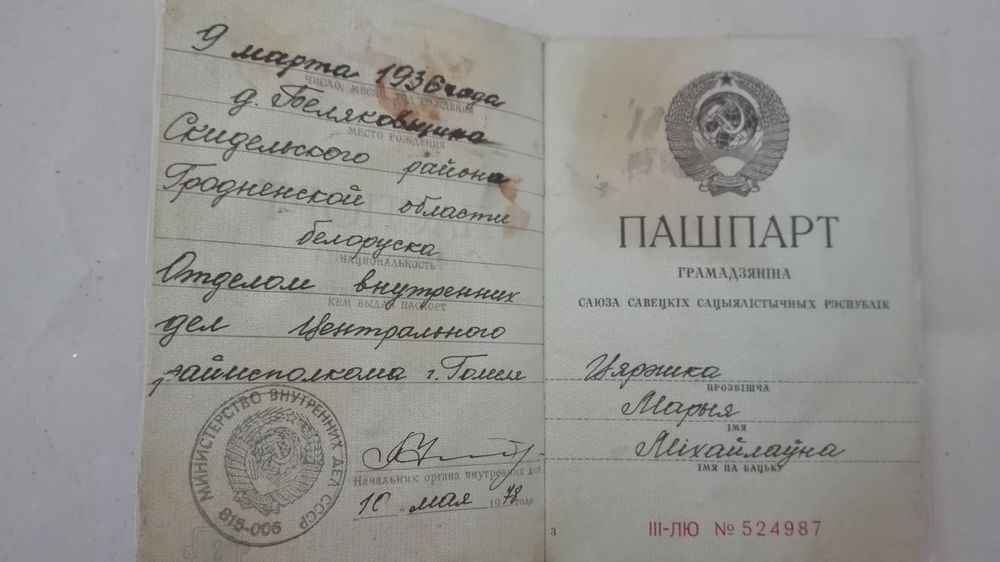 9 марта 1936 года
ЧИСЛО, МЕСЯЦ, ГОД РОЖДЕНИЯ
д. Беляковщина
МЕСТО РОЖДЕНИЯ
Скидельского района
Гродненской области
белоруска
НАЦИОНАЛЬНОСТЬ
Отделом внутренних
КЕМ ВЫДАН ПАСПОРТ
дел Центрального
райисполкома г. Гомеля
МИНИСТЕРСТВО ВНУТРЕННИХ ДЕЛ СССР
815-006
Начальник органа внутренних дел
10 мая 1978 года
2
ПАШПАРТ
ГРАМАДЗЯНІНА
САЮЗА САВЕЦКІХ САЦЫЯЛІСТЫЧНЫХ РЭСПУБЛІК
Цярэшка
ПРОЗВІШЧА
Марыя
ІМЯ
Міхайлаўна
ІМЯ ПА БАЦЬКУ
3
III-ЛЮ № 524987